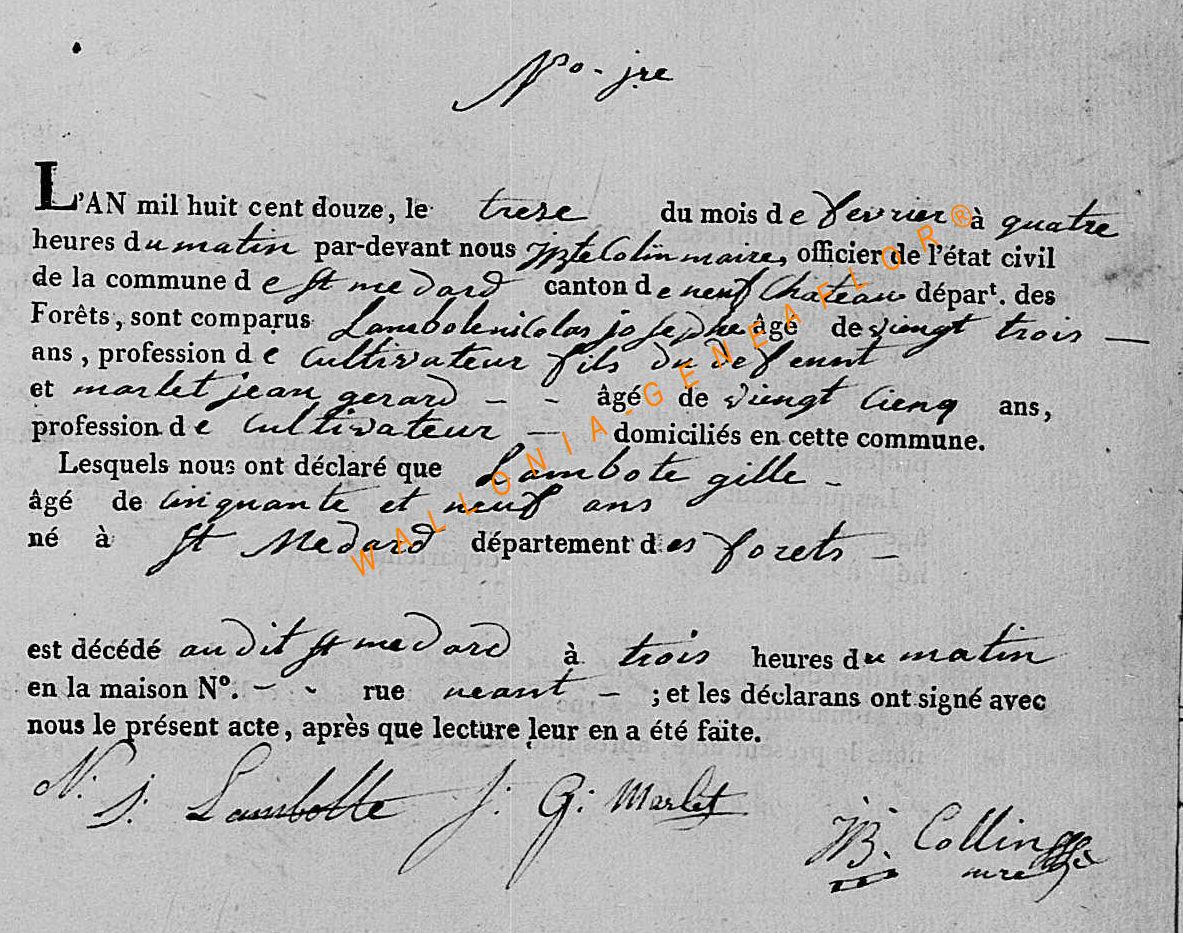 No. jre
L'AN mil huit cent douze, le trese du mois de fevrier à quatre
heures du matin par-devant nous JBte Colin maire, officier de l'état civil
de la commune de St medard canton de neuf Chateau départ. des
Forêts, sont comparus Lambote nicolas josephe âgé de viengt trois —
ans, profession de Cultivateur fils du defeunt
et marlet jean gerard - - âgé de viengt cienq ans,
profession de Cultivateur — domiciliés en cette commune.
Lesquels nous ont déclaré que Lambote gille -
âgé de cinquante et neuf ans
né à St Medard département des forets -
est décédé audit St medard à trois heures du matin
en la maison N°. - - rue neant - ; et les déclarans ont signé avec
nous le présent acte, après que lecture leur en a été faite.
N. j. Lambotte j: G: Marlet
JB. Collin
mre
WALLONIA.GENEAFLOR®